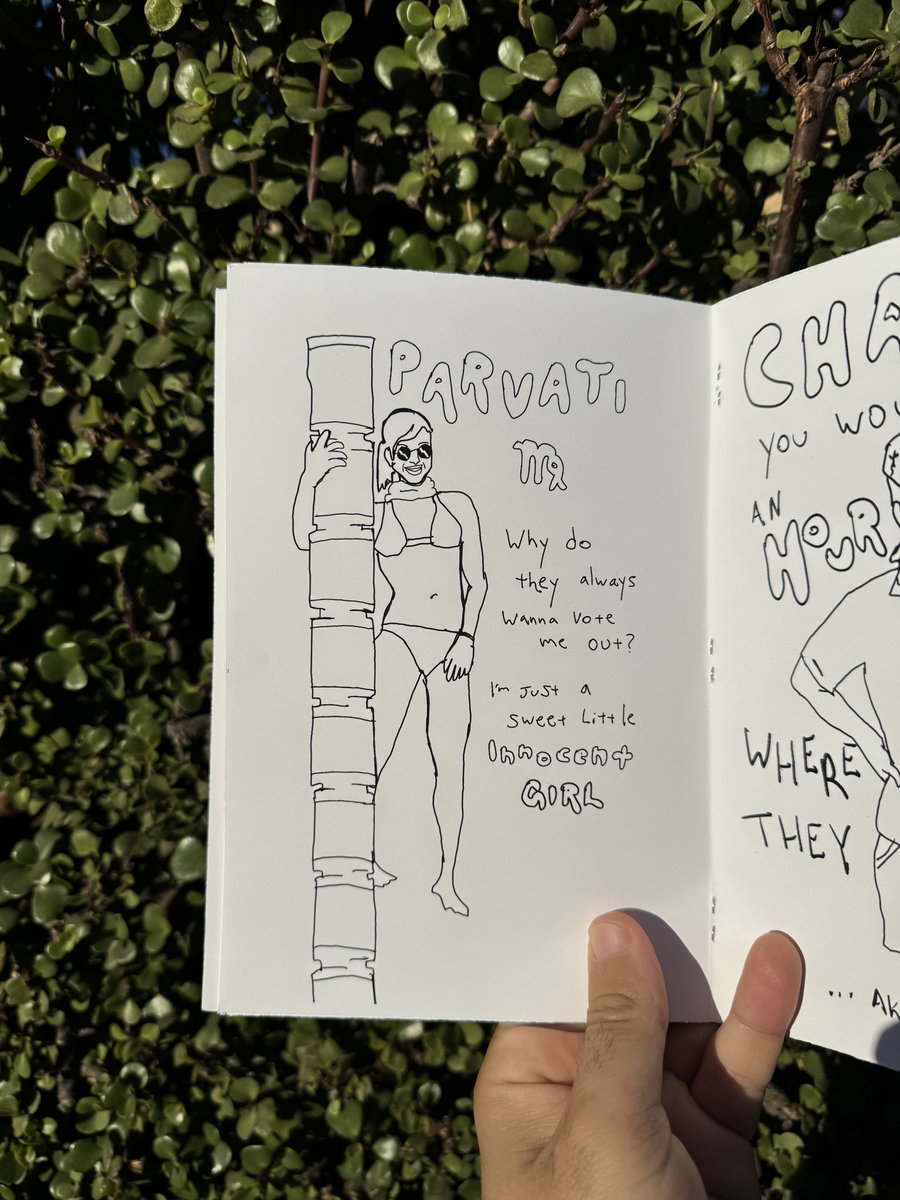 PARVATI
♍
Why do
they always
wanna vote
me out?
I'm just a
sweet little
Innocent
GIRL
YOU
AN
HOUR
WHERE
THEY
...